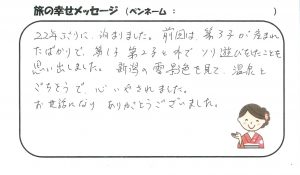 旅の幸せメッセージ（ペンネーム：　　　　）
22年ぶりに、泊まりました。前回は、第3子が産まれ
たばかりで、第1子 第2子と外でソリ遊びをしたことを
思い出しました。新潟の雪景色を見て、温泉と
ごちそうで、心いやされました。
お世話になり ありがとうございました。